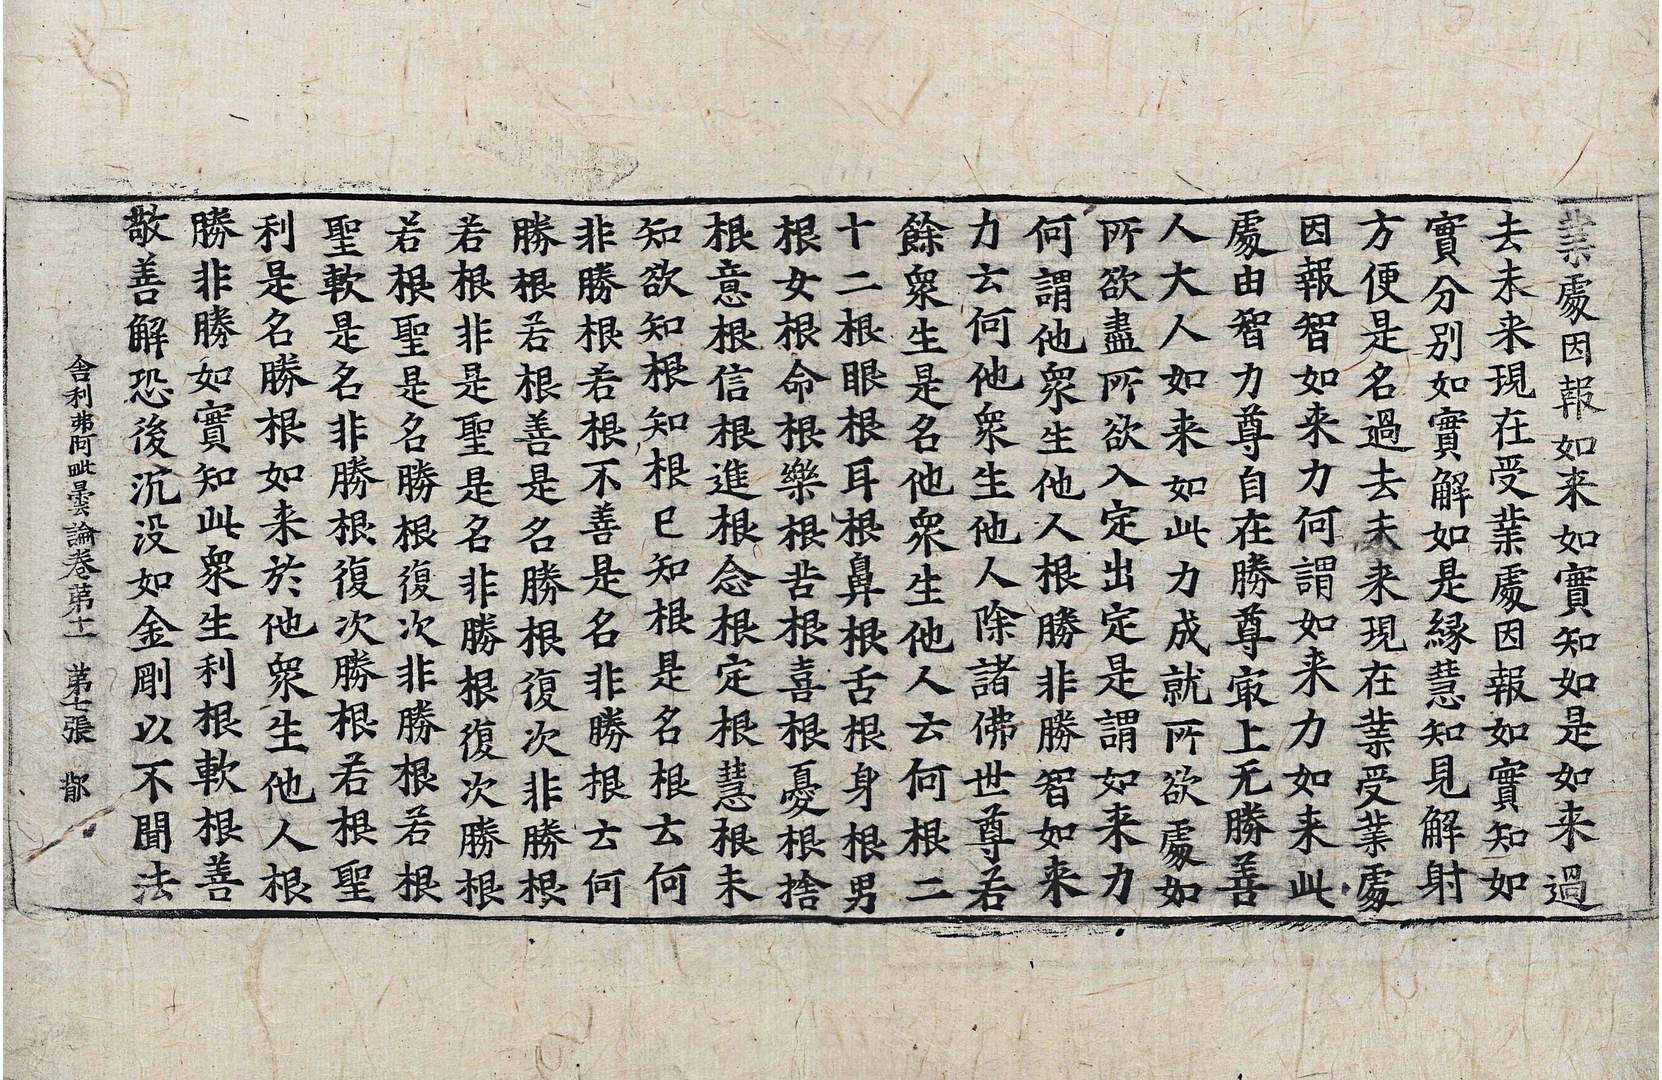 業處因報如来如實知如是如来過
去未来現在受業處因報如實知如
實分別如實解如是緣慧知見解射
方便是名過去未来現在業受業處
因報智如来力何謂如来力如来此
處由智力尊自在勝尊㝡上无勝善
人大人如来如此力成就所欲處如
所欲盡所欲入定出定是謂如来力
何謂他衆生他人根勝非勝智如来
力云何他衆生他人除諸佛世尊若
餘衆生是名他衆生他人云何根二
十二根眼根耳根鼻根舌根身根男
根女根命根樂根苦根喜根憂根捨
根意根信根進根念根定根慧根未
知欲知根知根已知根是名根云何
非勝根若根不善是名非勝根云何
勝根若根善是名勝根復次非勝根
若根非是聖是名非勝根復次勝根
若根聖是名勝根復次非勝根若根
聖軟是名非勝根復次勝根若根聖
利是名勝根如来於他衆生他人根
勝非勝如實知此衆生利根軟根善
散善解恐後沉没如金剛以不聞法
舍利弗阿毗曇論卷第十一 第七張 都